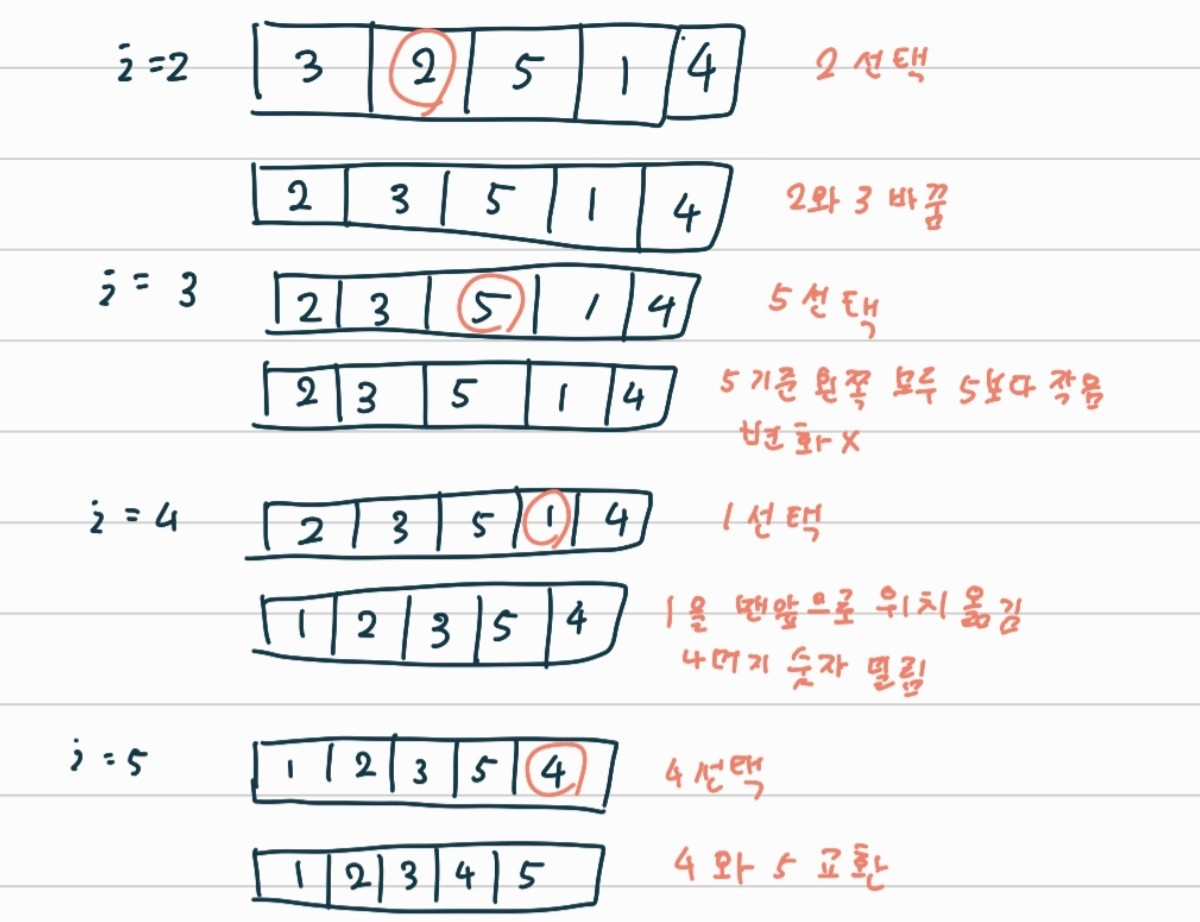 i=2 3 2 5 1 4 2 선택
2 3 5 1 4 2와 3 바꿈
i = 3 2 3 5 1 4 5 선택
2 3 5 1 4 5 기준 왼쪽 모두 5보다 작음
변화 X
i = 4 2 3 5 1 4 1 선택
1 2 3 5 4 1을 맨앞으로 위치 옮김
숫자 밀림
i = 5 1 2 3 5 4 4 선택
1 2 3 4 5 4와 5 교환